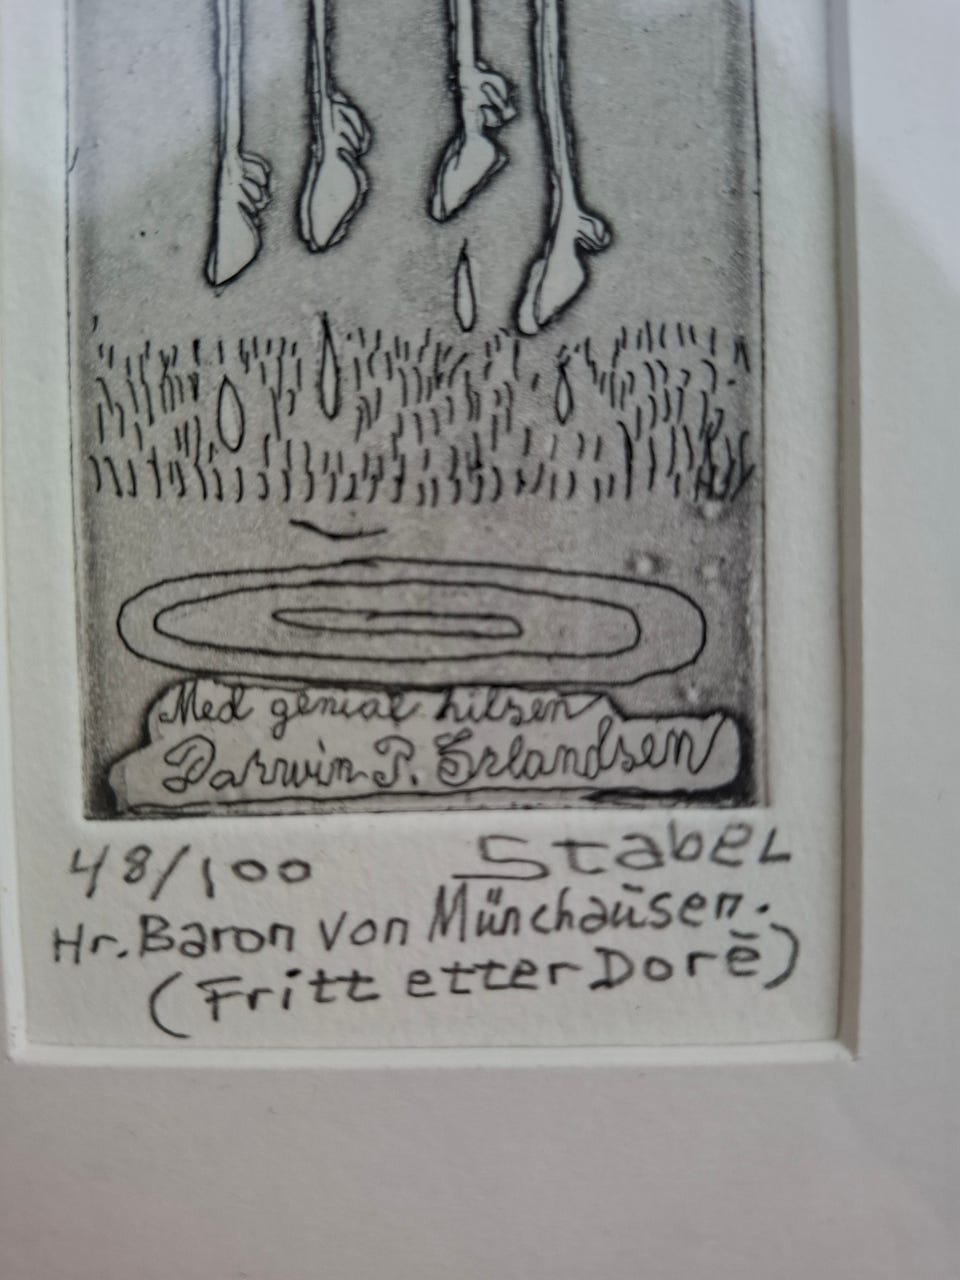 Med genial hilsen
Darwin P. Erlandsen
48/100 Stabel
Hr. Baron von Münchaüsen.
(Fritt etter Dorè)